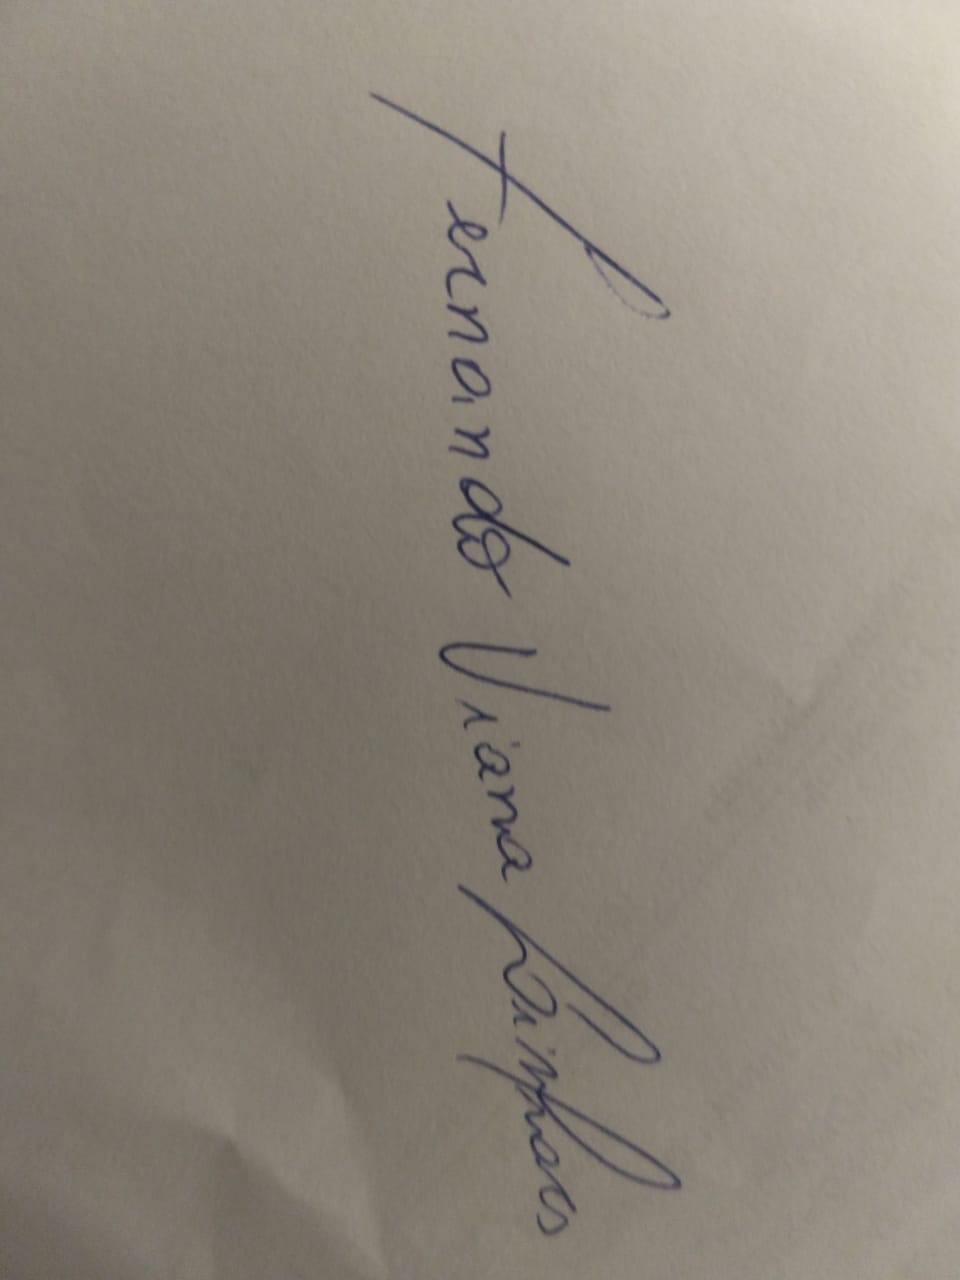 Fernando Viana Linhares